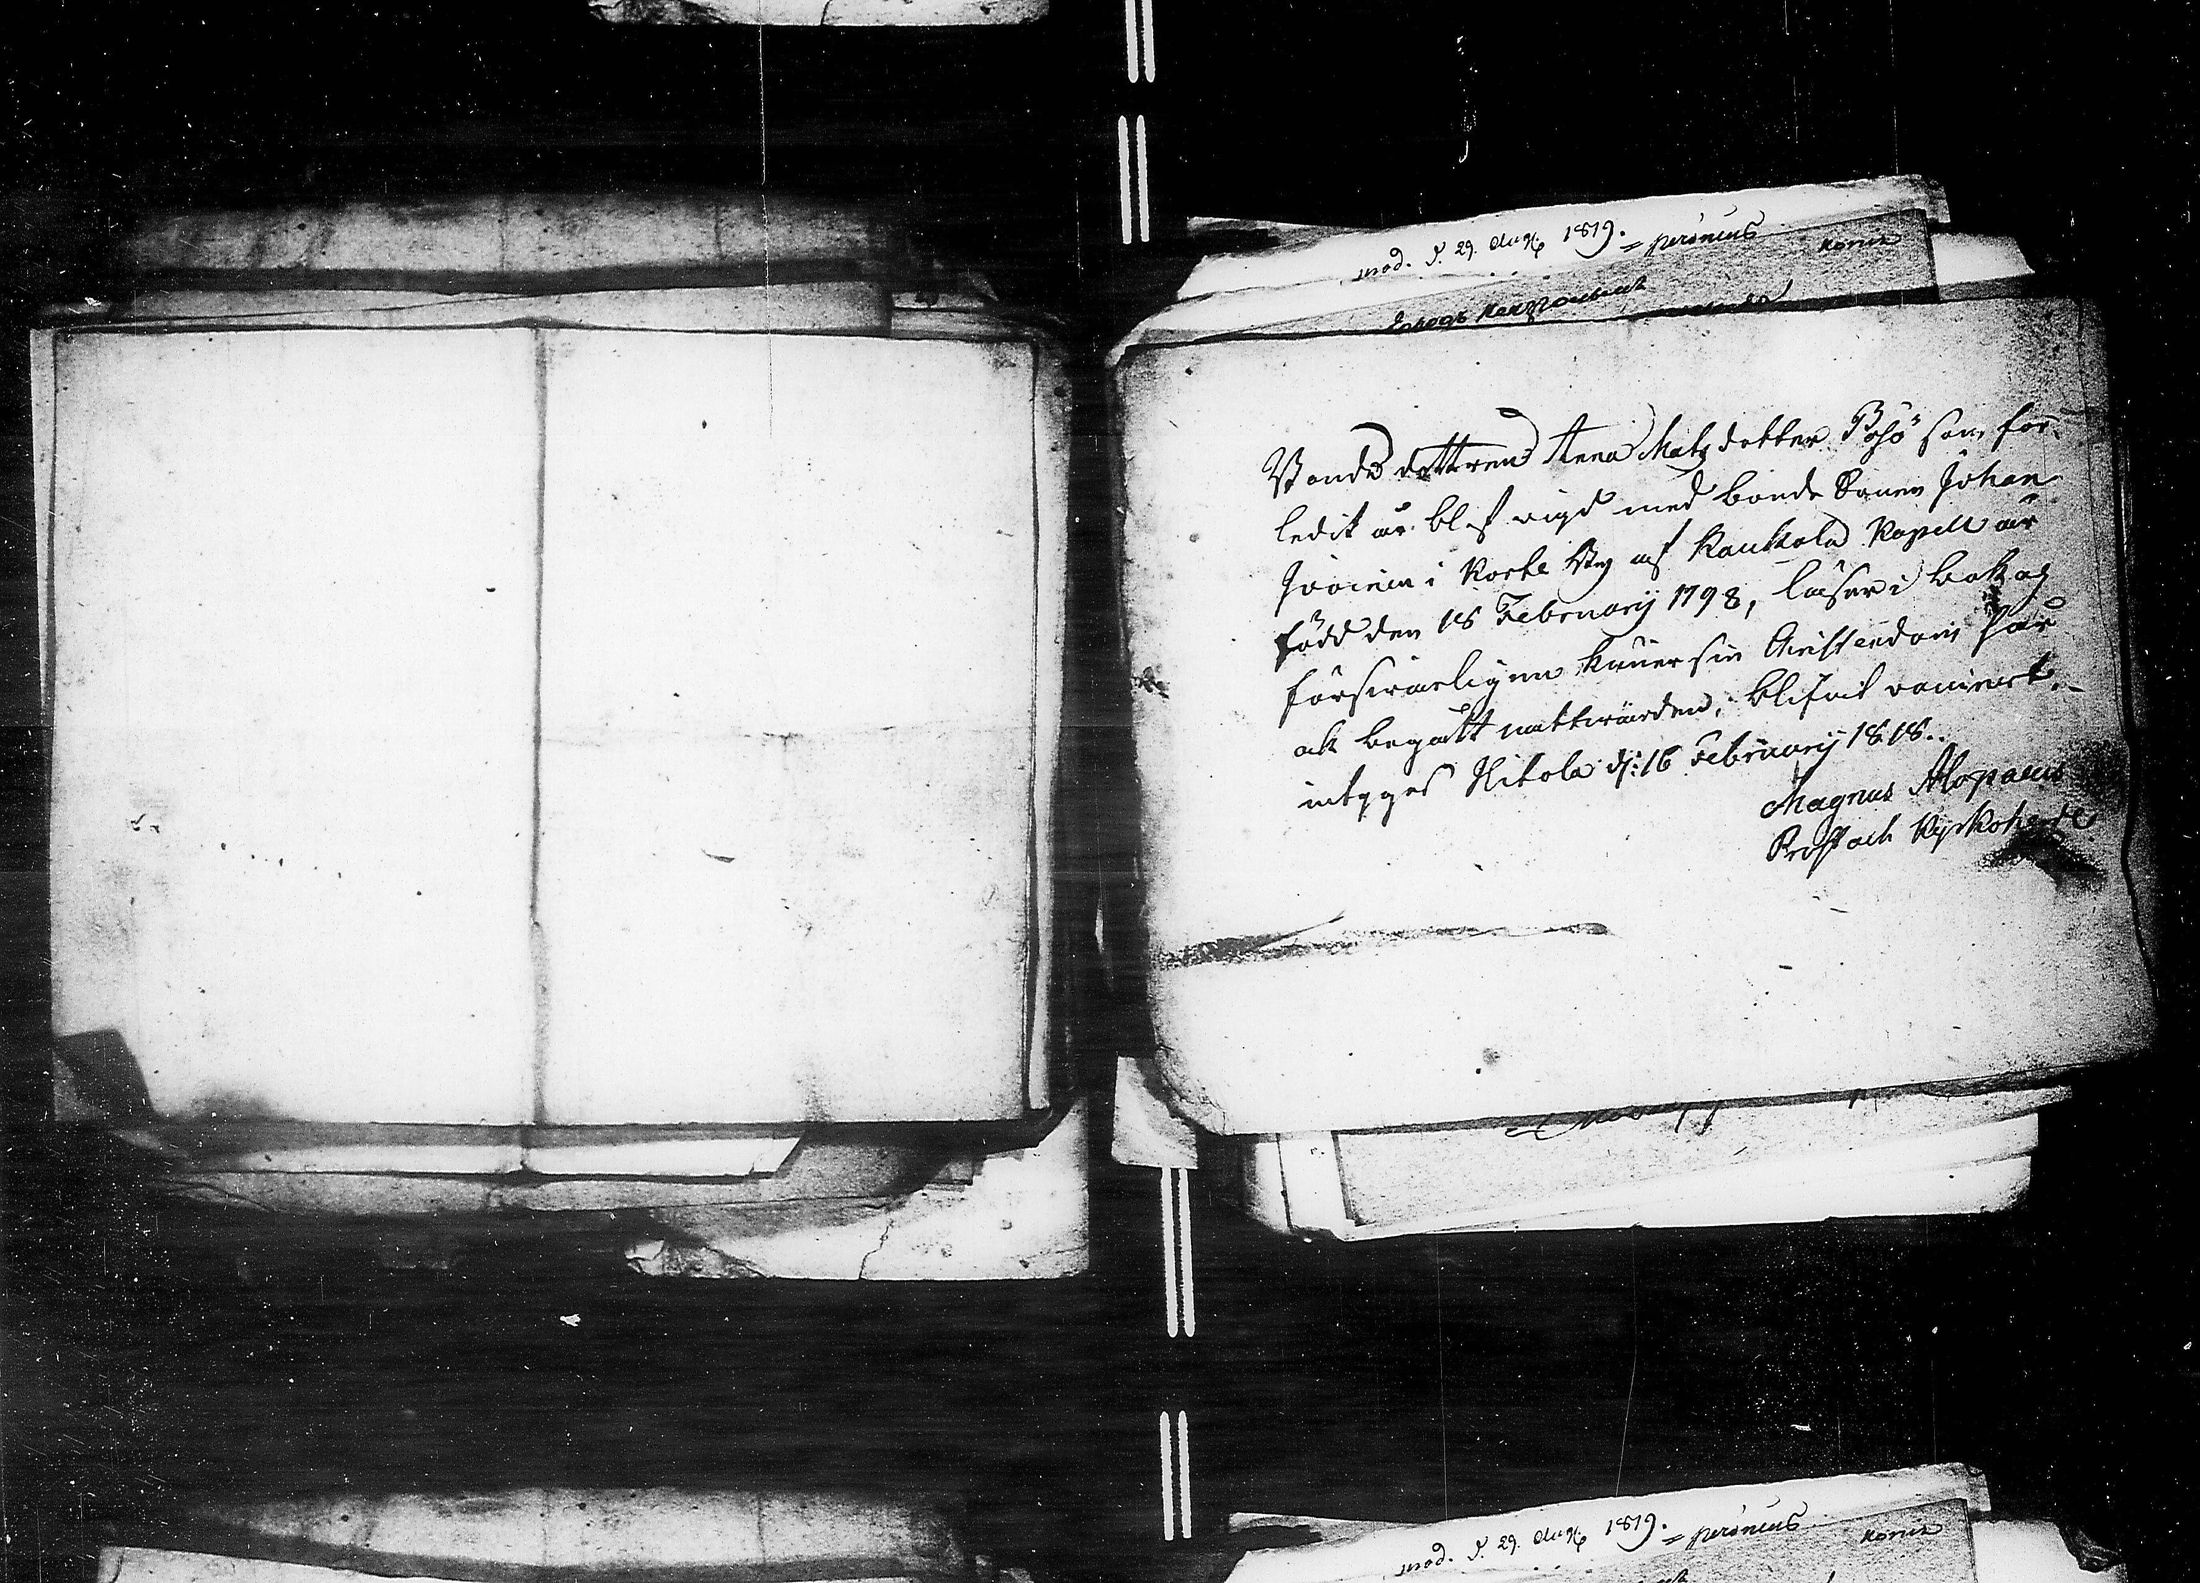 prod. d. 29. Aug 1819.
Bonde dottren Anna Mats dotter Pösö som för-
ledit år blef vigd med bonde Sonen Johan
i Korte By af Kaukola Kapell är
född den 18 Februarij 1798, läser i bok og
försvarligen kan sin Christendom har
ock begått nattvarden, blifvit vaccinert
intyges Hitola d: 16 Februarij 1818.
Magnus Alopaeus
Prost och Kyrkoherde
prod. d. 29. Aug 1819.